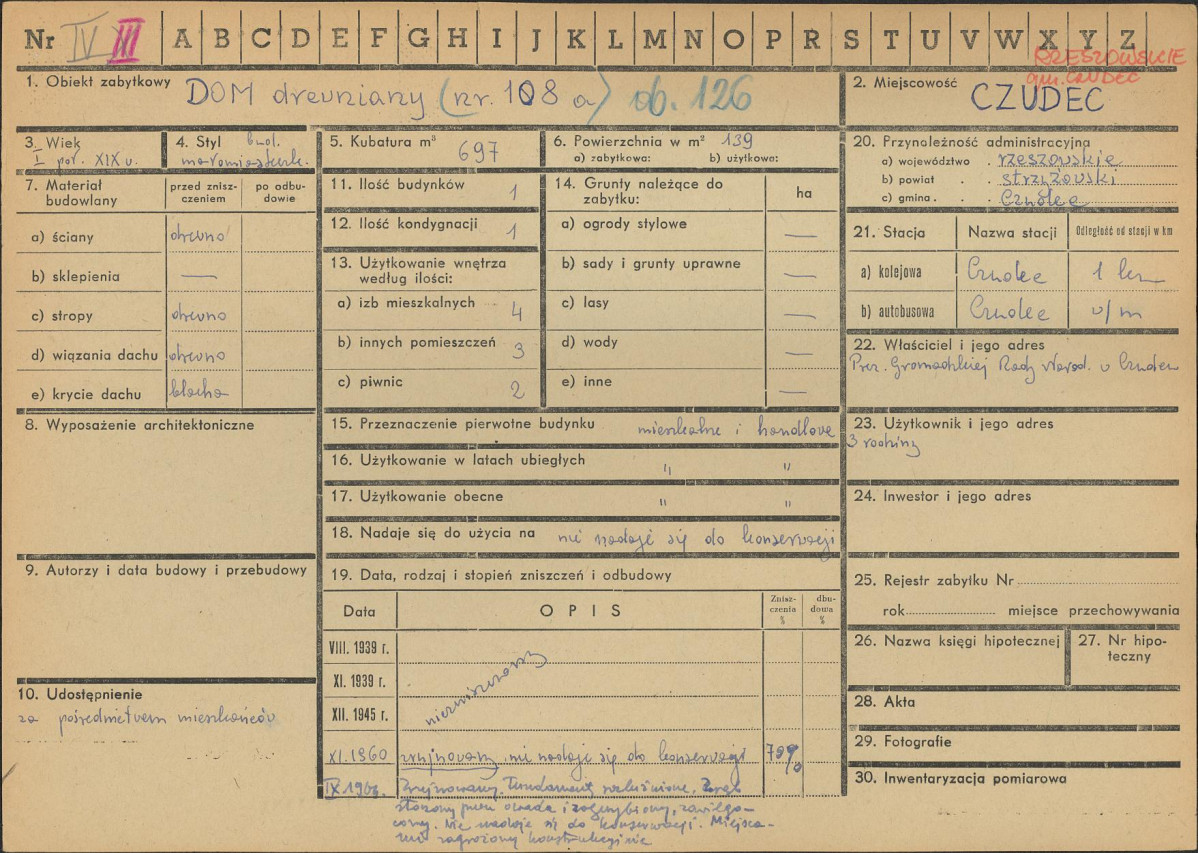 Nr IV III A B C D E F G H I J K L M N O P R S T U V W X Y Z
RZESZOWSKIE
gm. CZUDEC
1. Obiekt zabytkowy DOM drewniany (nr. 108 a) ob. 126
2. Miejscowość CZUDEC
3. Wiek I poł. XIX w.
4. Styl bud. małomiasteczk.
5. Kubatura m³ 697
6. Powierzchnia w m² 139
a) zabytkowa: b) użytkowa:
7. Materiał budowlany
przed zniszczeniem
po odbudowie
a) ściany drewno
b) sklepienia —
c) stropy drewno
d) wiązania dachu drewno
e) krycie dachu blacha
8. Wyposażenie architektoniczne
9. Autorzy i data budowy i przebudowy
10. Udostępnienie
za pośrednictwem mieszkańców
11. Ilość budynków 1
12. Ilość kondygnacji 1
13. Użytkowanie wnętrza
według ilości:
a) izb mieszkalnych 4
b) innych pomieszczeń 3
c) piwnic 2
14. Grunty należące do
zabytku: ha
a) ogrody stylowe —
b) sady i grunty uprawne —
c) lasy —
d) wody —
e) inne —
15. Przeznaczenie pierwotne budynku mieszkalne i handlowe
16. Użytkowanie w latach ubiegłych " "
17. Użytkowanie obecne " "
18. Nadaje się do użycia na nie nadaje się do konserwacji
19. Data, rodzaj i stopień zniszczeń i odbudowy
Data OPIS
Zniszczenia %
dbudowa %
VIII. 1939 r.
XI. 1939 r.
XII. 1945 r.
niezniszczony
XI. 1960 zrujnowany, nie nadaje się do konserwacji 70%
IX 196 Zrujnowany. Fundament rozluźnione, Zrąb
stoczony przez owada i zagrzybiony, zawilgo-
cony. Nie nadaje się do konserwacji. Miejsca-
mi zagrożony konstrukcyjnie
20. Przynależność administracyjna
a) województwo . rzeszowskie
b) powiat . . strzyżowski
c) gmina . . Czudec
21. Stacja Nazwa stacji Odległość od stacji w km
a) kolejowa Czudec 1 km
b) autobusowa Czudec w/m
22. Właściciel i jego adres
Prez. Gromadzkiej Rady Narod. w Czudcu
23. Użytkownik i jego adres
3 rodziny
24. Inwestor i jego adres
25. Rejestr zabytku Nr
rok miejsce przechowywania
26. Nazwa księgi hipotecznej
27. Nr hipo-
teczny
28. Akta
29. Fotografie
30. Inwentaryzacja pomiarowa